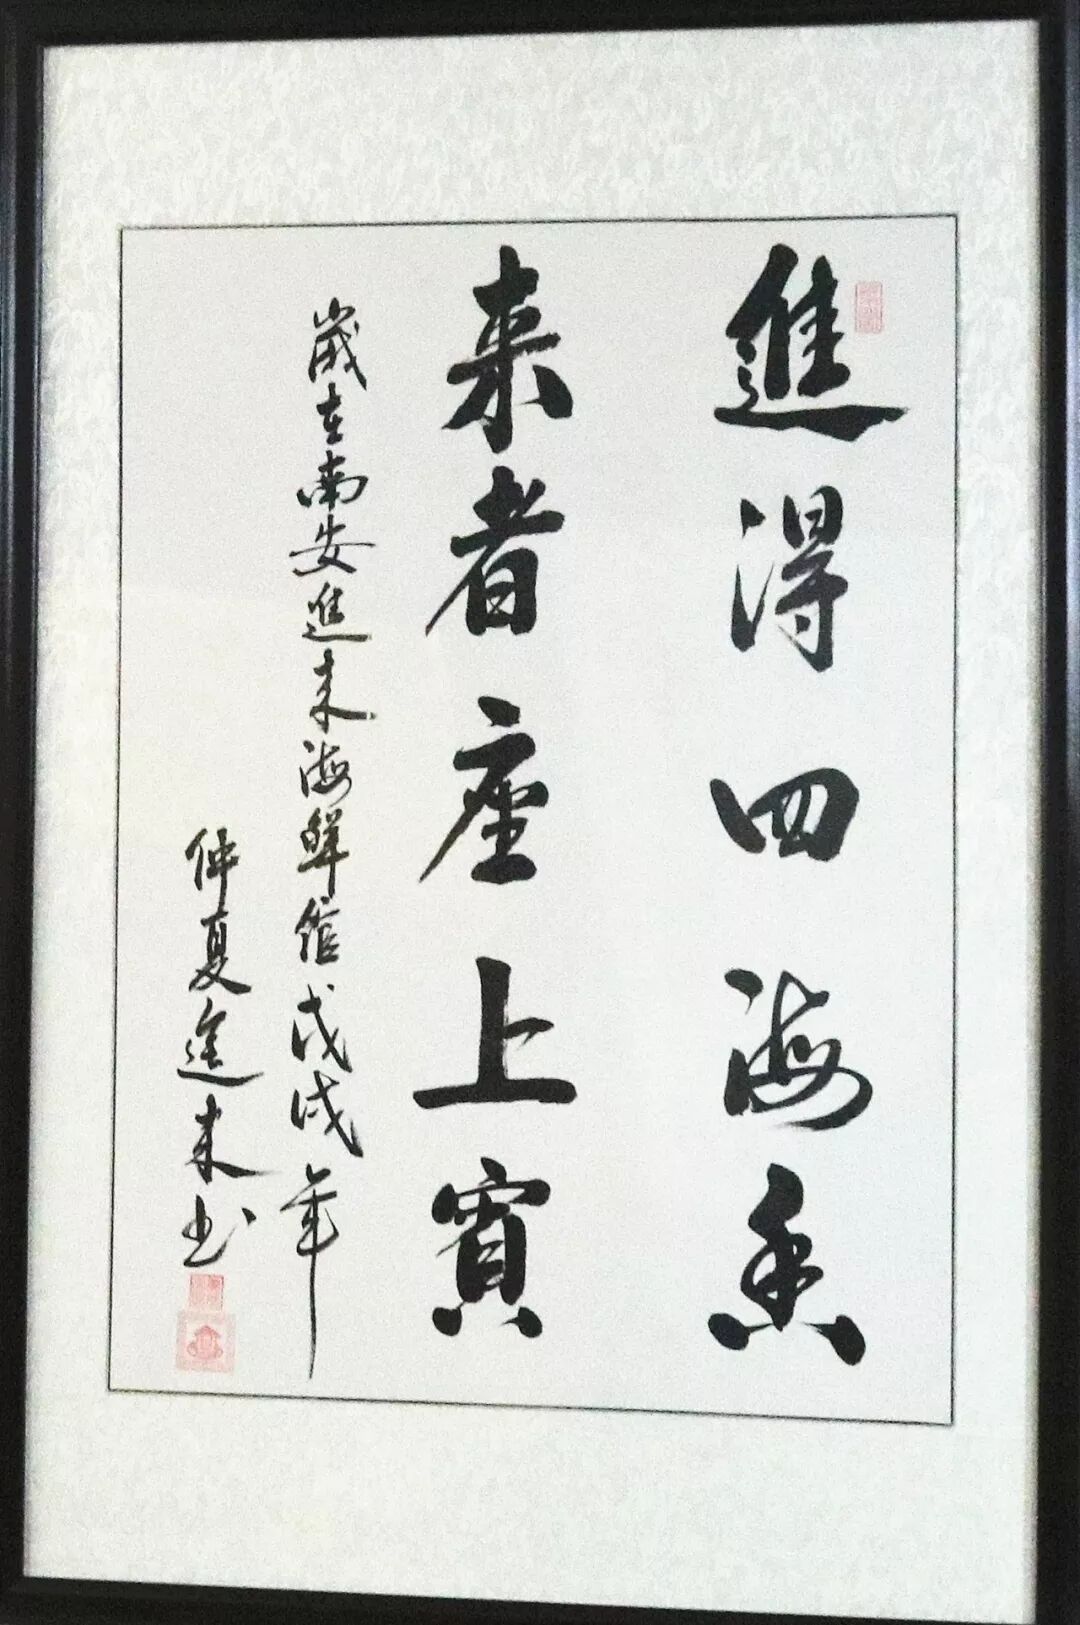 進得四海香
来者座上賓
歲在南安進来海鮮館戊戌年
仲夏進来书